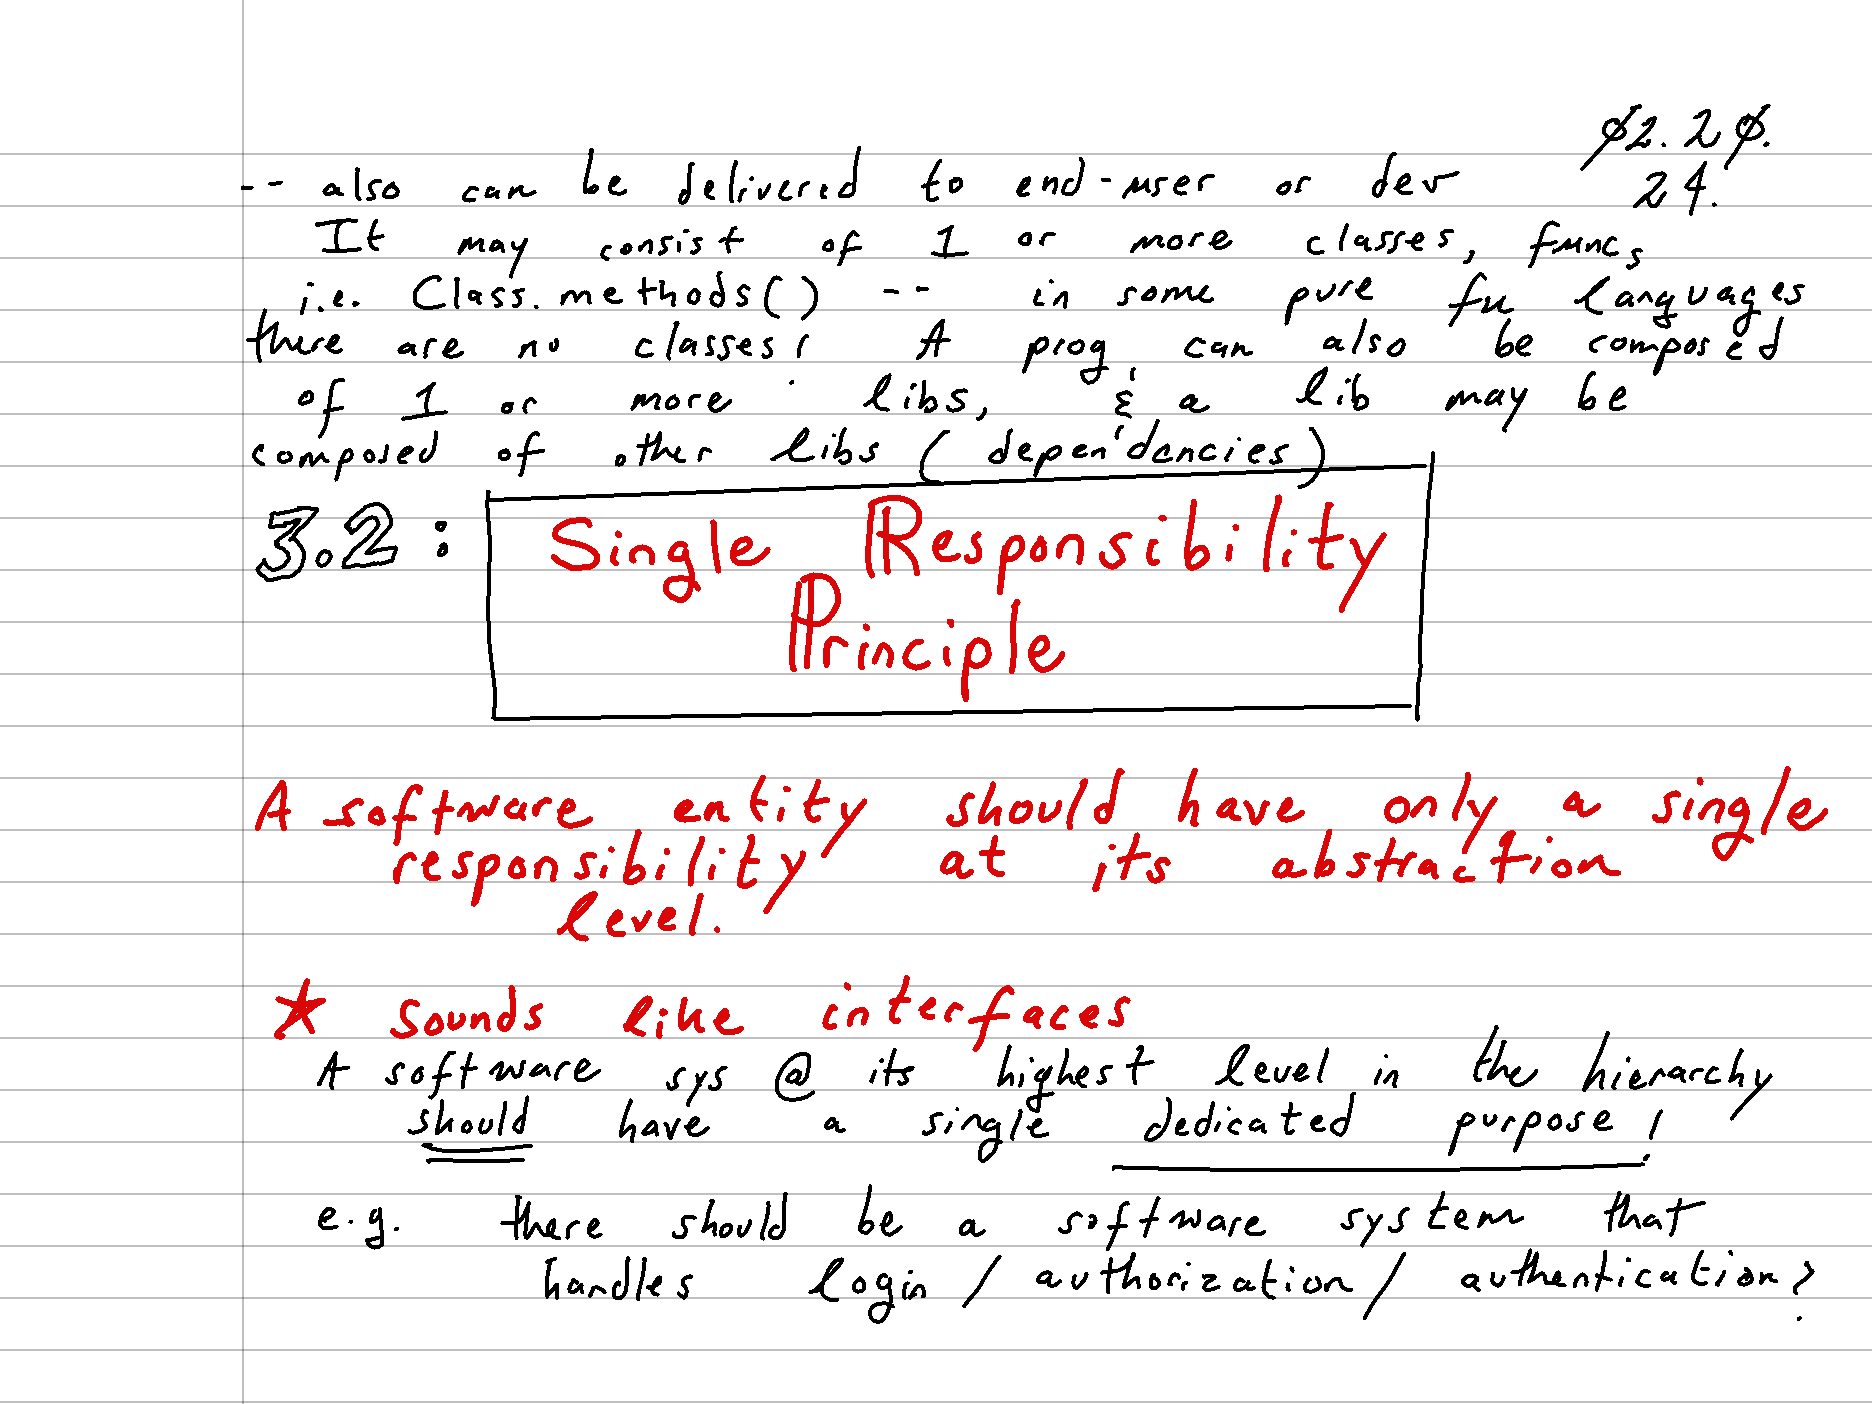 ø2.2ø.
24.
-- also can be delivered to end-user or dev
It may consist of 1 or more classes, funcs
i.e. Class.methods() -- in some pure fu languages
there are no classes! A prog can also be composed
of 1 or more libs, & a lib may be
composed of other libs (dependencies)
3.2: Single Responsibility
Principle
A software entity should have only a single
responsibility at its abstraction
level.
★ Sounds like interfaces
A software sys @ its highest level in the hierarchy
should have a single dedicated purpose!
e.g. there should be a software system that
handles login / authorization / authentication?